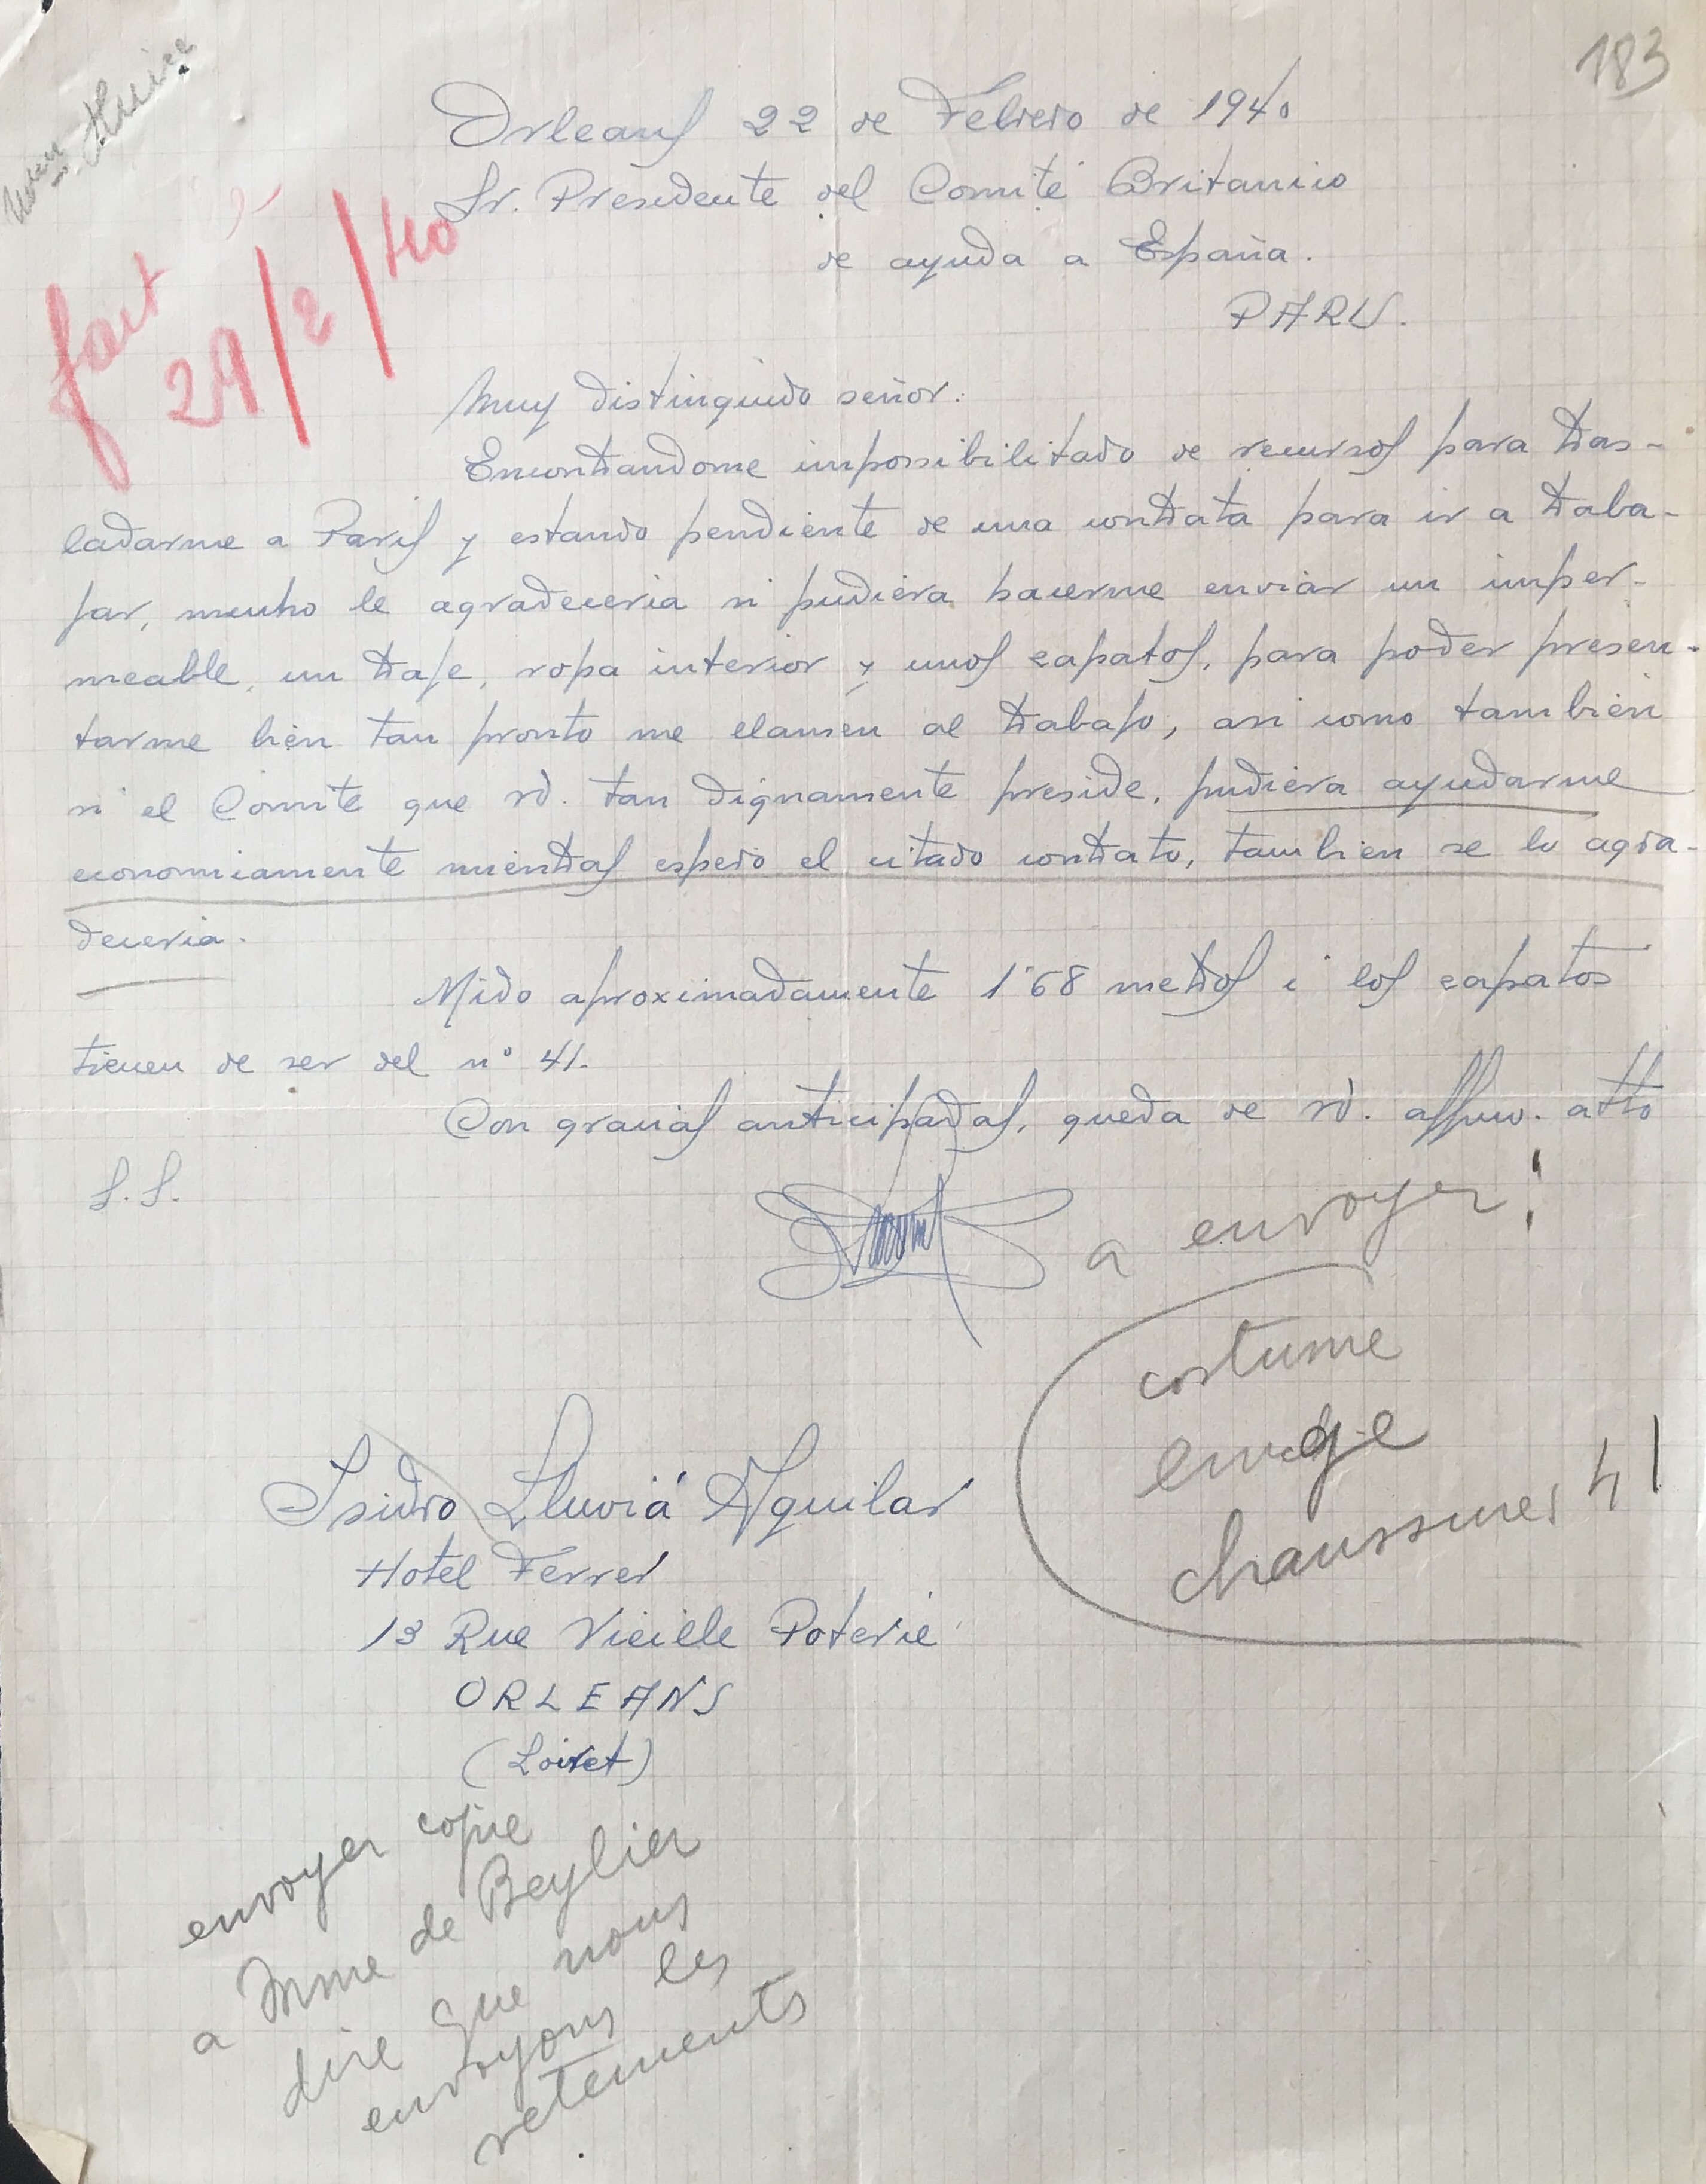 183
Orleans 22 de Febrero de 1940
Sr. Presidente del Comité Britanico
de ayuda a España.
PARIS.
fait
29/2/40
Muy distinguido señor:
Encontrandome imposibilitado de recursos para tras-
ladarme a Paris y estando pendiente de una contrata para ir a traba-
jar, mucho le agradeceria si pudiera hacerme enviar un imper-
meable, un traje, ropa interior y unos zapatos, para poder presen-
tarme bien tan pronto me llamen al trabajo, asi como tambien
si el Comite que Vd. tan dignamente preside, pudiera ayudarme
economicamente mientras espero el citado contrato, tambien se lo agra-
deceria.
Mido aproximadamente 1'68 metros i los zapatos
tienen de ser del nº 41.
Con gracias anticipadas, queda de Vd. affmo. atto
S.S.
a envoyer!
costume
linge
chaussures 41
Isidro Lluviá Aguilar
Hotel Ferrer
13 Rue Vieille Poterie
ORLEANS
(Loiret)
envoyer copie
a Mme de Beylier
dire que nous
envoyons les
vetements